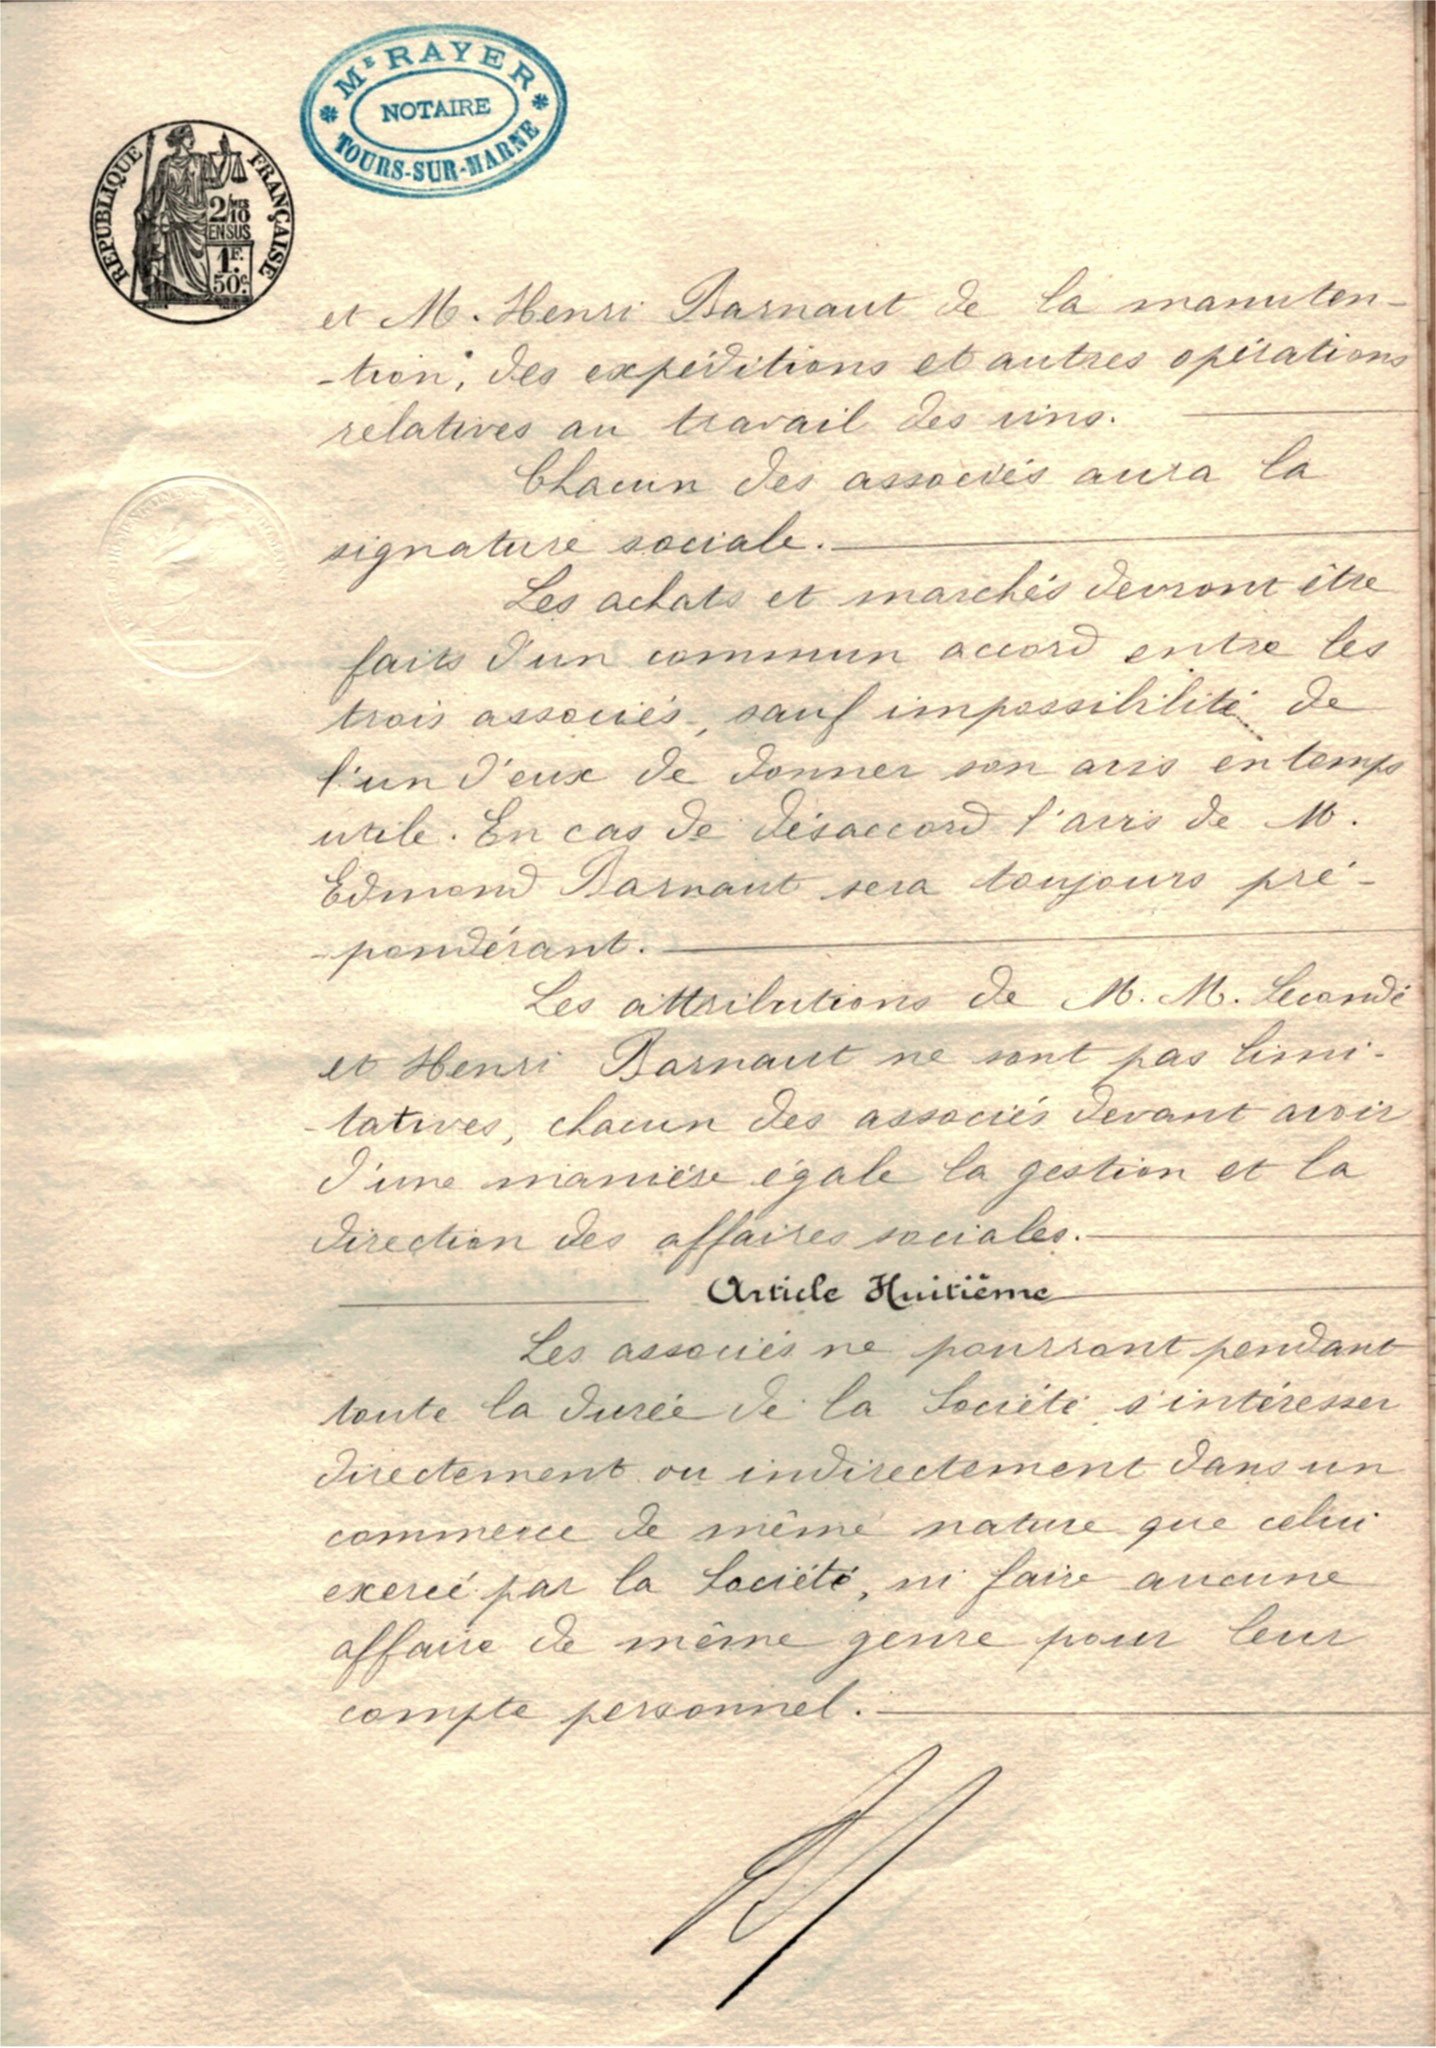 Me RAYER
NOTAIRE
TOURS-SUR-MARNE
RÉPUBLIQUE FRANÇAISE
2/10 EN SUS
1F. 50c.
et M. Henri Barnaut de la manuten-
-tion, des expéditions et autres opérations
relatives au travail des vins.
Chacun des associés aura la
signature sociale.
Les achats et marchés devront être
faits d'un commun accord entre les
trois associés, sauf impossibilité de
l'un d'eux de donner son avis en temps
utile. En cas de désaccord l'avis de M.
Edmond Barnaut sera toujours pré-
-pondérant.
Les attributions de M. M. Secondé
et Henri Barnaut ne sont pas limi-
-tatives, chacun des associés devant avoir
d'une manière égale la gestion et la
direction des affaires sociales.
Article Huitième
Les associés ne pourront pendant
toute la durée de la Société s'intéresser
directement ou indirectement dans un
commerce de même nature que celui
exercé par la Société, ni faire aucune
affaire de même genre pour leur
compte personnel.